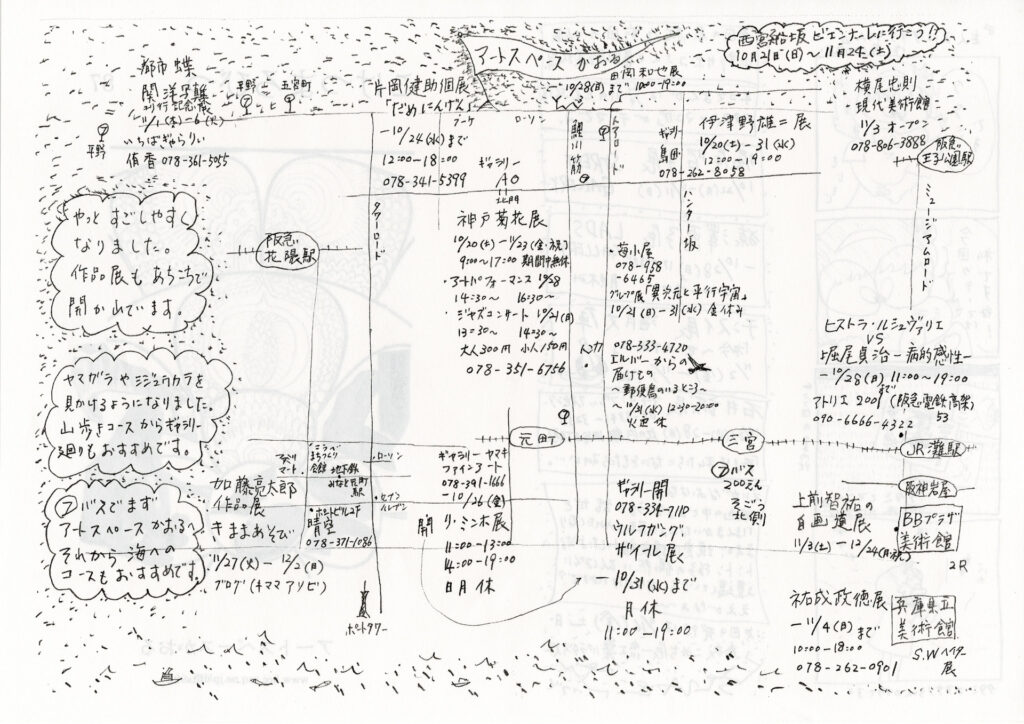 西宮船坂ビエンナーレに行こう!!
10月21日(日)〜11月24(土)
アートスペース かおる
田岡和也展
10/28(日)まで 10:00〜19:00
都市蝶
関洋子展
刊行記念展
11/1(木)〜6(火)
いちばぎゃらりぃ
侑香 078-361-5055
平野
平野
五宮町
片岡健助個展
「だめにんげん」
-10/24(水)まで
12:00-18:00
078-341-5399
ブーケ
ローソン
鯉川筋
トアロード
ギャラリー島田
伊津野雄二展
10/20(土)-31(水)
12:00-19:00
078-262-8058
横尾忠則
現代美術館
11/3 オープン
078-806-3888
阪急
王子公園駅
ギャラリー
AO
北門
やっと すごしやすく
なりました。
作品展も あちこちで
開かれています。
阪急
花隈駅
タワーロード
神戸菊花展
10/20(土)-11/23(金・祝)
9:00〜17:00 期間中無休
・アートパフォーマンス 10/28
14:30〜 16:30〜
・ジャズコンサート 10/21(日)
13:30〜 14:30〜
大人300円 小人150円
078-351-6756
ハンター坂
・苺小屋
078-958
-6465
グループ展「異次元と平行宇宙」
10/21(日)-31(水) 金休み
078-333-4720
エルバーからの
届けもの
〜郵便鳥のいるところ〜
〜10/31(水) 12:30-20:00
火定休
ミュージアムロード
ヒストラ・ルシュヴァリエ
VS
堀尾貞治-病的感性-
-10/28(日)まで 11:00〜19:00
アトリエ2001 (阪急電鉄高架)
53
090-6666-4322
ヤマガラやミジュウカラを
見かけるようになりました。
山歩きコースからギャラリー
廻りもおすすめです。
元町
三宮
JR灘駅
阪神岩屋
バス
200えん
そごう
北側
こうべ
まちづくり
会館
地下鉄
みなと元町
駅
・ローソン
・セブン
イレブン
バスでまず
アートスペースかおるへ
それから海への
コースもおすすめです。
加藤亮太郎
作品展
きままあそびで
11/27(火)-12/2(日)
ブログ(キママアソビ)
晴空
078-371-1086
ポートタワー
ギャラリーヤマキ
ファインアート
078-391-1666
-10/26(金)
リ・ミンホ展
11:00-13:00
14:00-19:00
日月休
ギャラリー開
078-334-7110
ウルフガング・
ザイール展
-10/31(水)まで
月休
11:00-19:00
開
上前智祐の
自画道展
11/3(土)-12/24(月・祝)
BBプラザ
美術館
2R
祐成政徳展
-11/4(日)まで
10:00-18:00
078-262-0901
兵庫県立
美術館
S.Wペインター
展